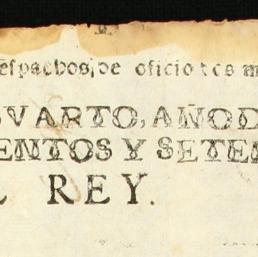 espachos, de oficio
VARTO, AÑO D
ENTOS Y SETEN
REY.